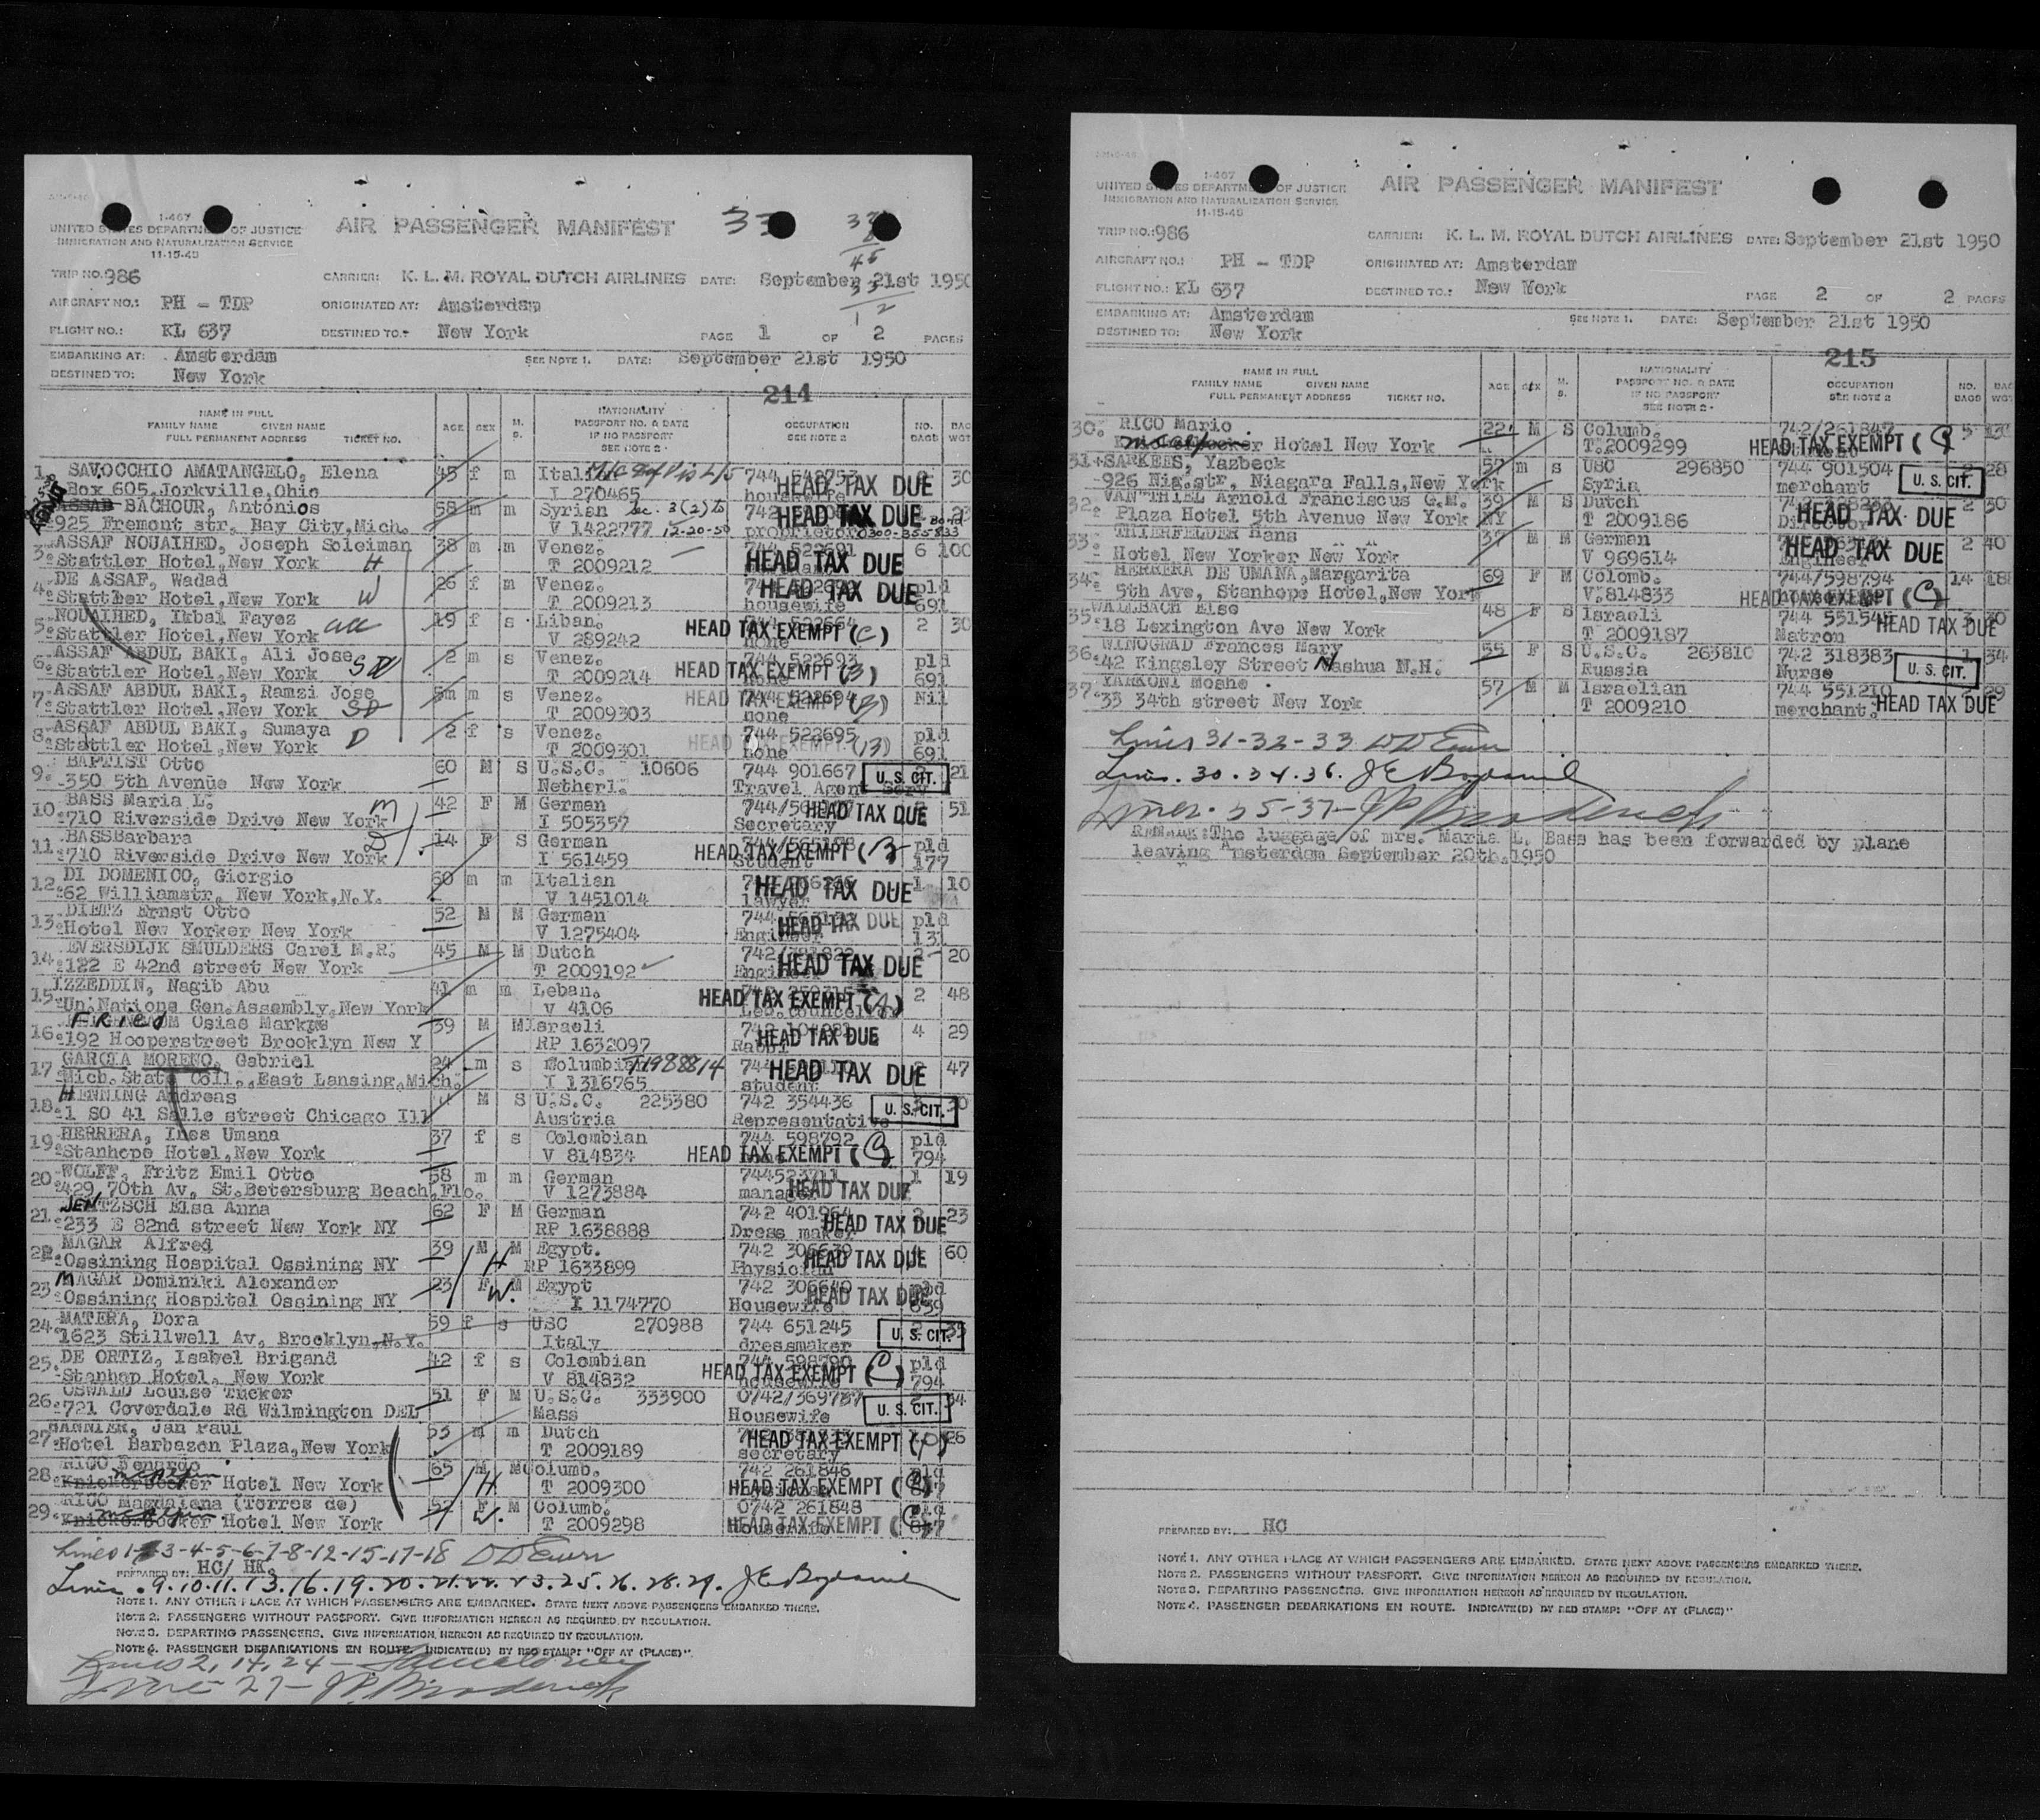 I-467
UNITED STATES DEPARTMENT OF JUSTICE
IMMIGRATION AND NATURALIZATION SERVICE
11-15-45
AIR PASSENGER MANIFEST
33
TRIP NO. 986
CARRIER: K. L. M. ROYAL DUTCH AIRLINES DATE: September 21st 1950
AIRCRAFT NO.: PH - TDP ORIGINATED AT: Amsterdam
FLIGHT NO.: KL 637 DESTINED TO.: New York PAGE 1 OF 2 PAGES
EMBARKING AT: Amsterdam SEE NOTE 1. DATE: September 21st 1950
DESTINED TO: New York
214
NAME IN FULL
FAMILY NAME GIVEN NAME
FULL PERMANENT ADDRESS TICKET NO.
AGE SEX M. S.
NATIONALITY
PASSPORT NO. & DATE
IF NO PASSPORT
SEE NOTE 2
OCCUPATION
SEE NOTE 2
NO. BAGS BAG WGT
1. SAVOCCHIO AMATANGELO, Elena 45 f m 744 548753 30
Box 605, Jorkville, Ohio I 270465 housewife HEAD TAX DUE
ADMIT
ASSAB BACHOUR, Antonios 58 m m Syrian Sec. 3(2)
925 Fremont str. Bay City, Mich. V 1422777 12-20-50 proprietor HEAD TAX DUE 0300-355833
3. ASSAF NOUAIHED, Joseph Soleiman 38 m m Venez. 744 522691 6 100
Stattler Hotel, New York H T 2009212 HEAD TAX DUE
4. DE ASSAF, Wadad 26 f m Venez. pld
Stattler Hotel, New York W T 2009213 housewife HEAD TAX DUE 691
5. NOUAIHED, Ikbal Fayez 19 f s Liban. 744 522664 2 30
Stattler Hotel, New York V 289242 none HEAD TAX EXEMPT (C)
6. ASSAF ABDUL BAKI, Ali Jose 2 m s Venez. 744 522693 pld
Stattler Hotel, New York T 2009214 none HEAD TAX EXEMPT (B) 691
7. ASSAF ABDUL BAKI, Ramzi Jose 5m m s Venez. 744 522694 Nil
Stattler Hotel, New York T 2009303 none HEAD TAX EXEMPT (B)
8. ASSAF ABDUL BAKI, Sumaya 2 f s Venez. 744 522695 pld
Stattler Hotel, New York D T 2009301 none HEAD TAX EXEMPT (13) 691
9. BAPTIST Otto 60 M S U.S.C. 10606 744 901667 21
350 5th Avenue New York Netherl. Travel Agen Serv U. S. CIT.
10. BASS Maria L. M 42 F M German 51
710 Riverside Drive New York I 505357 Secretary HEAD TAX DUE
11. BASS Barbara 14 F S German pld
710 Riverside Drive New York I 561459 Student HEAD TAX EXEMPT (B 177
12. DI DOMENICO, Giorgio 60 m m Italian 1 10
62 Williamstr, New York, N.Y. V 1451014 lawyer HEAD TAX DUE
13. DIETZ Ernst Otto 52 M M German pld
Hotel New Yorker New York V 1275404 Engineer HEAD TAX DUE 131
14. EVERSDIJK SMULDERS Carel M.R. 45 M M Dutch 2 20
122 E 42nd street New York T 2009192 Engineer HEAD TAX DUE
15. IZZEDDIN, Nagib Abu 41 m m Leban. 2 48
Un. Nations Gen. Assembly, New York V 4106 HEAD TAX EXEMPT (A)
FRIED
16. Osias Markus 39 M M Israeli 4 29
192 Hooperstreet Brooklyn New Y RP 1632097 Rabbi HEAD TAX DUE
17. GARCIA MORENO, Gabriel 24 m s 47
Mich. State Coll., East Lansing, Mich. I 1316765 student HEAD TAX DUE
18. HENNING Andreas M S U.S.C. 225380 742 354436 30
1 SO 41 Salle street Chicago Ill Austria Representative U. S. CIT.
19. HERRERA, Ines Umana 37 f s Colombian 744 598792 pld
Stanhope Hotel, New York V 814834 HEAD TAX EXEMPT (C) 794
20. WOLFF, Fritz Emil Otto 58 m m German 744523711 1 19
429 70th Av, St. Betersburg Beach, Flo. V 1273884 manager HEAD TAX DUE
21. JENTZSCH Elsa Anna 62 F M German 742 401964 23
233 E 82nd street New York NY RP 1638888 Dress maker HEAD TAX DUE
22. MAGAR Alfred 39 M M Egypt. 742 306639 60
Ossining Hospital Ossining NY H RP 1633899 Physician HEAD TAX DUE
23. MAGAR Dominiki Alexander 23 F M Egypt 742 306640 pld
Ossining Hospital Ossining NY W. I 1174770 Housewife HEAD TAX DUE 639
24. MATERA, Dora 59 f s USC 270988 744 651245 35
1623 Stillwell Av, Brooklyn, N.Y. Italy dressmaker U. S. CIT.
25. DE ORTIZ, Isabel Brigand 42 f s Colombian 744 598790 pld
Stanhop Hotel, New York V 814832 housewife HEAD TAX EXEMPT (C) 794
26. OSWALD Louise Tucker 51 F M U.S.C. 333900 0742/369787 2 34
721 Coverdale Rd Wilmington DEL Mass Housewife U. S. CIT.
27. HANNIER, Jan Paul 53 m m Dutch 26
Hotel Barbazon Plaza, New York T 2009189 secretary HEAD TAX EXEMPT
28. RICO Benardo 65 M M Columb. 742 261846 pld
Knickerbocker Hotel New York H T 2009300 HEAD TAX EXEMPT (C) 847
29. RICO Magdalena (Torres de) 52 F M Columb. 0742 261848 pld
Knickerbocker Hotel New York W. T 2009298 Housewife HEAD TAX EXEMPT (C) 847
Lines 1-3-4-5-6-7-8-12-15-17-18
PREPARED BY: HC/ HK.
Lines . 9.10.11.13.16.19.20.21.22.23.25.26.28.29.
NOTE 1. ANY OTHER PLACE AT WHICH PASSENGERS ARE EMBARKED. STATE NEXT ABOVE PASSENGERS EMBARKED THERE.
NOTE 2. PASSENGERS WITHOUT PASSPORT. GIVE INFORMATION HEREON AS REQUIRED BY REGULATION.
NOTE 3. DEPARTING PASSENGERS. GIVE INFORMATION HEREON AS REQUIRED BY REGULATION.
NOTE 4. PASSENGER DEBARKATIONS EN ROUTE. INDICATE(D) BY RED STAMP: "OFF AT (PLACE)".
Lines 2, 14, 24 -
Line 27 -
I-467
UNITED STATES DEPARTMENT OF JUSTICE
IMMIGRATION AND NATURALIZATION SERVICE
11-15-45
AIR PASSENGER MANIFEST
TRIP NO.: 986 CARRIER: K. L. M. ROYAL DUTCH AIRLINES DATE: September 21st 1950
AIRCRAFT NO.: PH - TDP ORIGINATED AT: Amsterdam
FLIGHT NO.: KL 637 DESTINED TO.: New York PAGE 2 OF 2 PAGES
EMBARKING AT: Amsterdam SEE NOTE 1. DATE: September 21st 1950
DESTINED TO: New York
215
NAME IN FULL
FAMILY NAME GIVEN NAME
FULL PERMANENT ADDRESS TICKET NO.
AGE SEX M. S.
NATIONALITY
PASSPORT NO. & DATE
IF NO PASSPORT
SEE NOTE 2
OCCUPATION
SEE NOTE 2
NO. BAGS BAG WGT
30. RICO Mario 22 M S Columb. 742/261847 5
Hotel New York T. 2009299 HEAD TAX EXEMPT (C)
31. SARKEES, Yazbeck 57 m s USC 296850 744 901504 2 28
926 Nig. str, Niagara Falls, New York Syria merchant U. S. CIT.
32. VAN THIEL Arnold Franciscus G.M. 39 M S Dutch 2 30
Plaza Hotel 5th Avenue New York NY T 2009186 Director HEAD TAX DUE
33. THIERFELDER Hans 37 M M German 2 40
Hotel New Yorker New York V 969614 Engineer HEAD TAX DUE
34. HERRERA DE UMANA, Margarita 69 F M Colomb. 744/598794 14 188
5th Ave, Stanhope Hotel, New York V. 814833 HEAD TAX EXEMPT (C)
35. WALLBACH Else 48 F S Israeli 30
18 Lexington Ave New York T 2009187 Matron HEAD TAX DUE
36. WINOGRAD Frances Mary 55 F S U.S.C. 263810 742 318383 1 34
42 Kingsley Street Nashua N.H. Russia Nurse U. S. CIT.
37. YARKONI Moshe 57 M M Israelian 744 551210 29
33 34th street New York T 2009210 merchant. HEAD TAX DUE
Lines 31-32-33
Lines . 30.34.36.
Lines - 35-37-
Remark: The luggage of mrs. Maria L. Bass has been forwarded by plane
leaving Amsterdam September 20th, 1950
PREPARED BY: HC
NOTE 1. ANY OTHER PLACE AT WHICH PASSENGERS ARE EMBARKED. STATE NEXT ABOVE PASSENGERS EMBARKED THERE.
NOTE 2. PASSENGERS WITHOUT PASSPORT. GIVE INFORMATION HEREON AS REQUIRED BY REGULATION.
NOTE 3. DEPARTING PASSENGERS. GIVE INFORMATION HEREON AS REQUIRED BY REGULATION.
NOTE 4. PASSENGER DEBARKATIONS EN ROUTE. INDICATE(D) BY RED STAMP: "OFF AT (PLACE)"